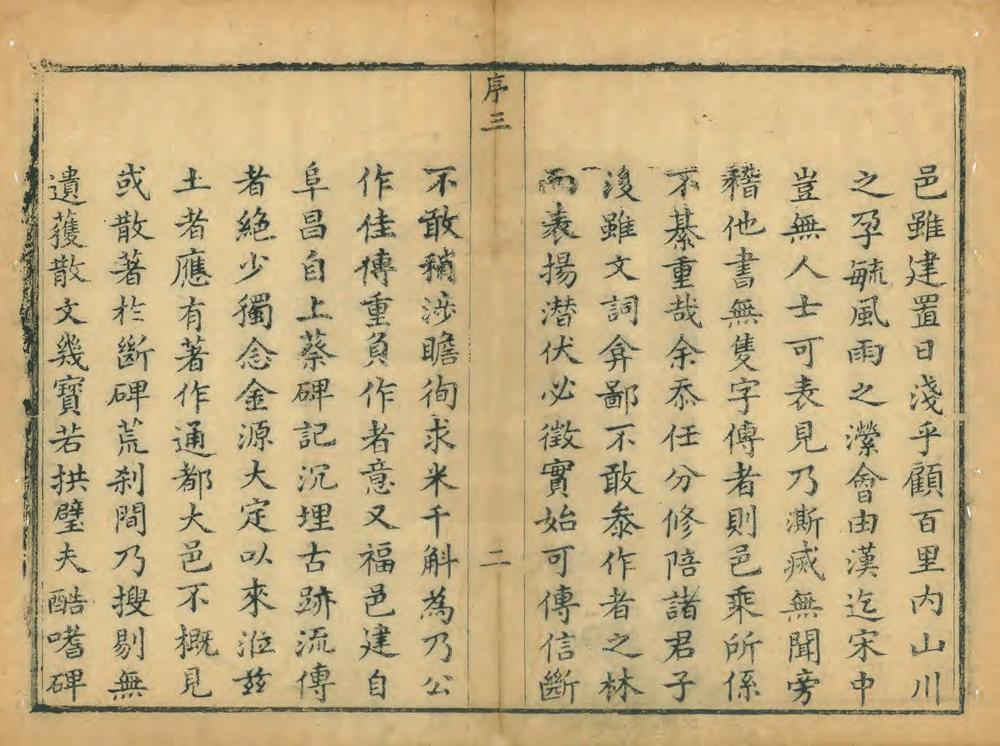 邑雖建置日淺乎顧百里内山川
之孕毓風雨之瀠會由漢迄宋中
豈無人士可表見乃澌滅無聞旁
稽他書無隻字傳者則邑乘所係
不綦重哉余忝任分修陪諸君子
後雖文詞弇鄙不敢叅作者之林
而表揚潜伏必徵實始可傳信斷
序三
二
不敢稍涉瞻徇求米千斛為乃公
作佳傳重負作者意又福邑建自
阜昌自上蔡碑記沉埋古跡流傳
者絶少獨念金源大定以來涖兹
土者應有著作通都大邑不概見
或散著於斷碑荒刹間乃搜剔無
遺獲散文幾寳若拱璧夫酷嗜碑